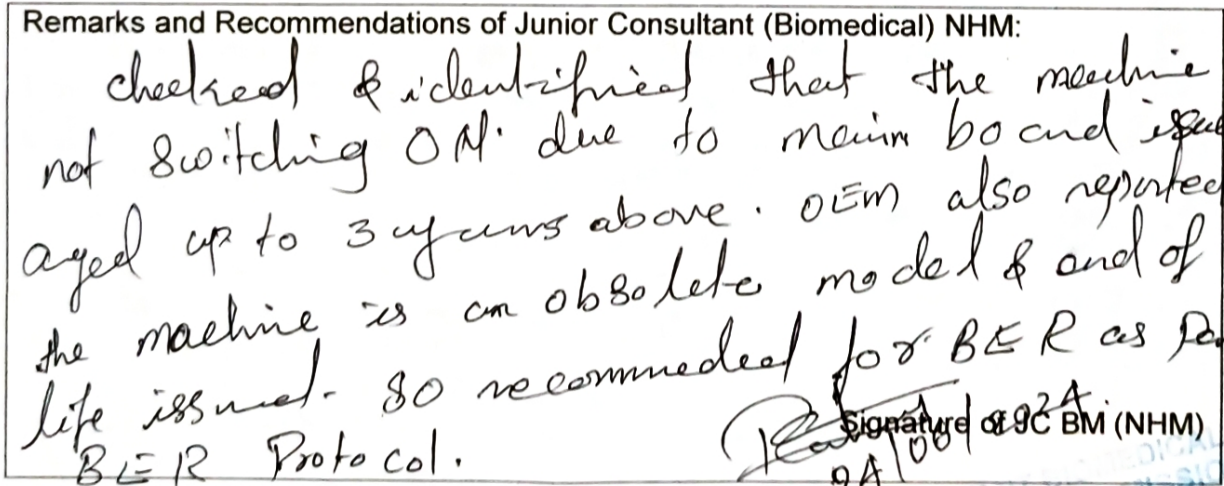 Remarks and Recommendations of Junior Consultant (Biomedical) NHM:
checked & identified that the machine
not switching ON. due to main board issue
aged up to 3 years above. OEM also reported
the machine is an obsolete model & end of
life issued. So recommeded for BER as Per
BER Protocol.
Signature of JC BM (NHM)